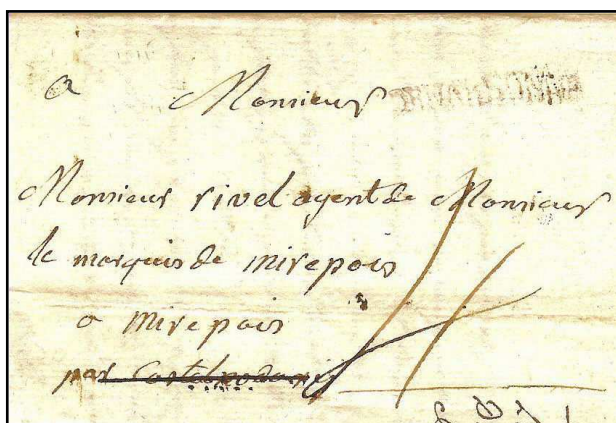 a Monsieur
Monsieur rivel agent de Monsieur
le marquis de mirepois
a mirepois
par Castelnodary